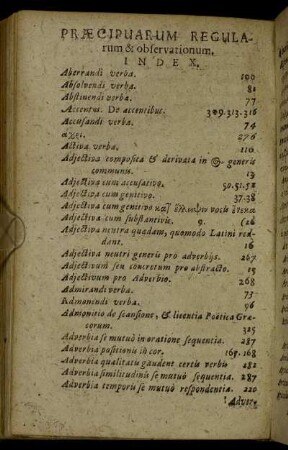 PRÆCIPUARUM REGULA-
rum & observationum,
INDEX.
Aberrandi verba. 100
Absolvendi verba. 81
Abstinendi verba. 77
Accentus. De accentibus. 309.313.316
Accusandi verba. 74
276
Activa verba. 110
Adjectiva composita & derivata in generis
communis. 13
Adjectiva cum accusativo. 50.51.52
Adjectiva cum genitivo. 37.38
Adjectiva cum genitivo
Adjectiva cum substantivis.
Adjectiva neutra quædam, quomodo Latini red-
dant. 16
Adjectiva neutri generis pro adverbijs. 267
Adjectivum seu concretum pro abstracto. 15
Adjectivum pro Adverbio. 268
Admirandi verba. 73
Admonendi verba. 96
Admonitio de scansione, & licentia Poëtica Græ-
corum. 325
Adverbia se mutuò in oratione sequentia. 287
Adverbia positionis in cor. 169.168
Adverbia qualitatis gaudent certis verbis 282
Adverbia similitudinis se mutuò sequentia. 287
Adverbia temporis se mutuò respondentia. 220
Adver-